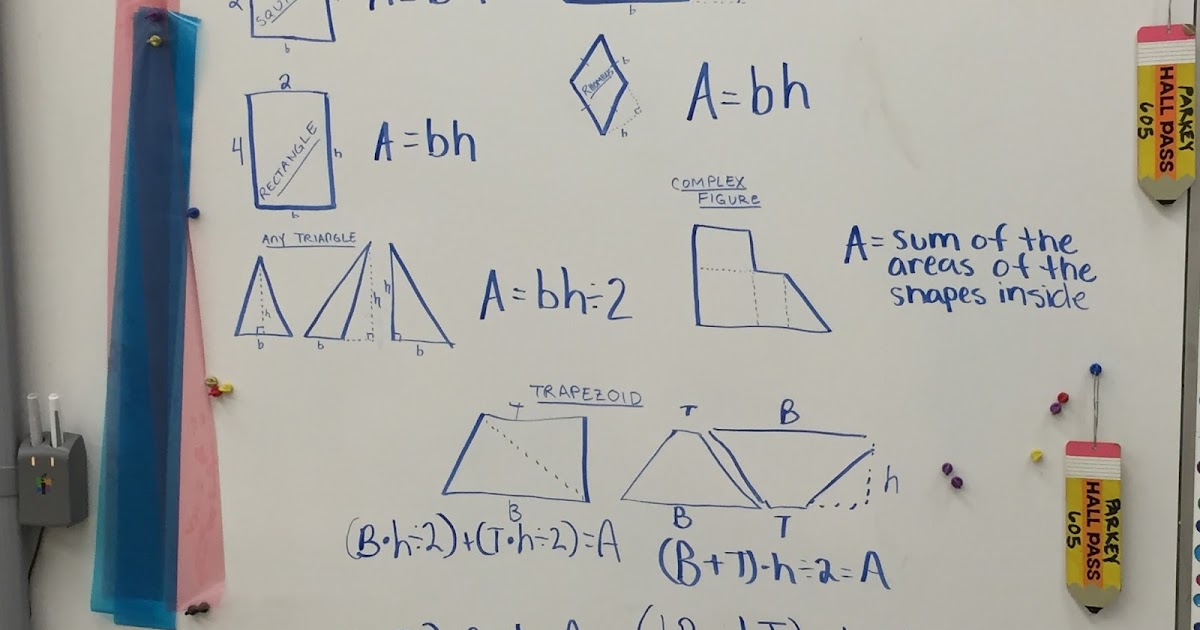 b
b
2
4
RECTANGLE
h
b
A=bh
RHOMBUS
b
h
A=bh
ANY TRIANGLE
h
b
h
b
h
b
A=bh÷2
COMPLEX
FIGURE
A= sum of the
areas of the
shapes inside
TRAPEZOID
T
B
T
B
B
T
h
(B•h÷2)+(T•h÷2)=A
(B+T)•h÷2=A
PARKEY
HALL PASS
605
PARKEY
HALL PASS
605